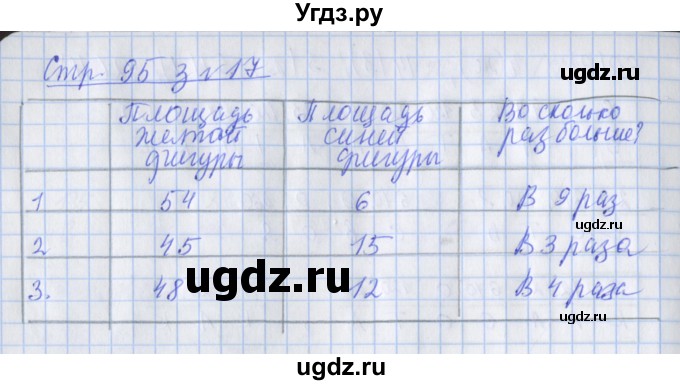 Угдз.ру
Стр. 95 З №17
ugdz.ru
Площадь желтой фигуры Площадь синей фигуры Во сколько раз больше?
1 54 6 В 9 раз
ugdz.ru
2 45 15 В 3 раза
ugdz.ru
3. 48 12 В 4 раза
ugdz.ru
ugdz.ru